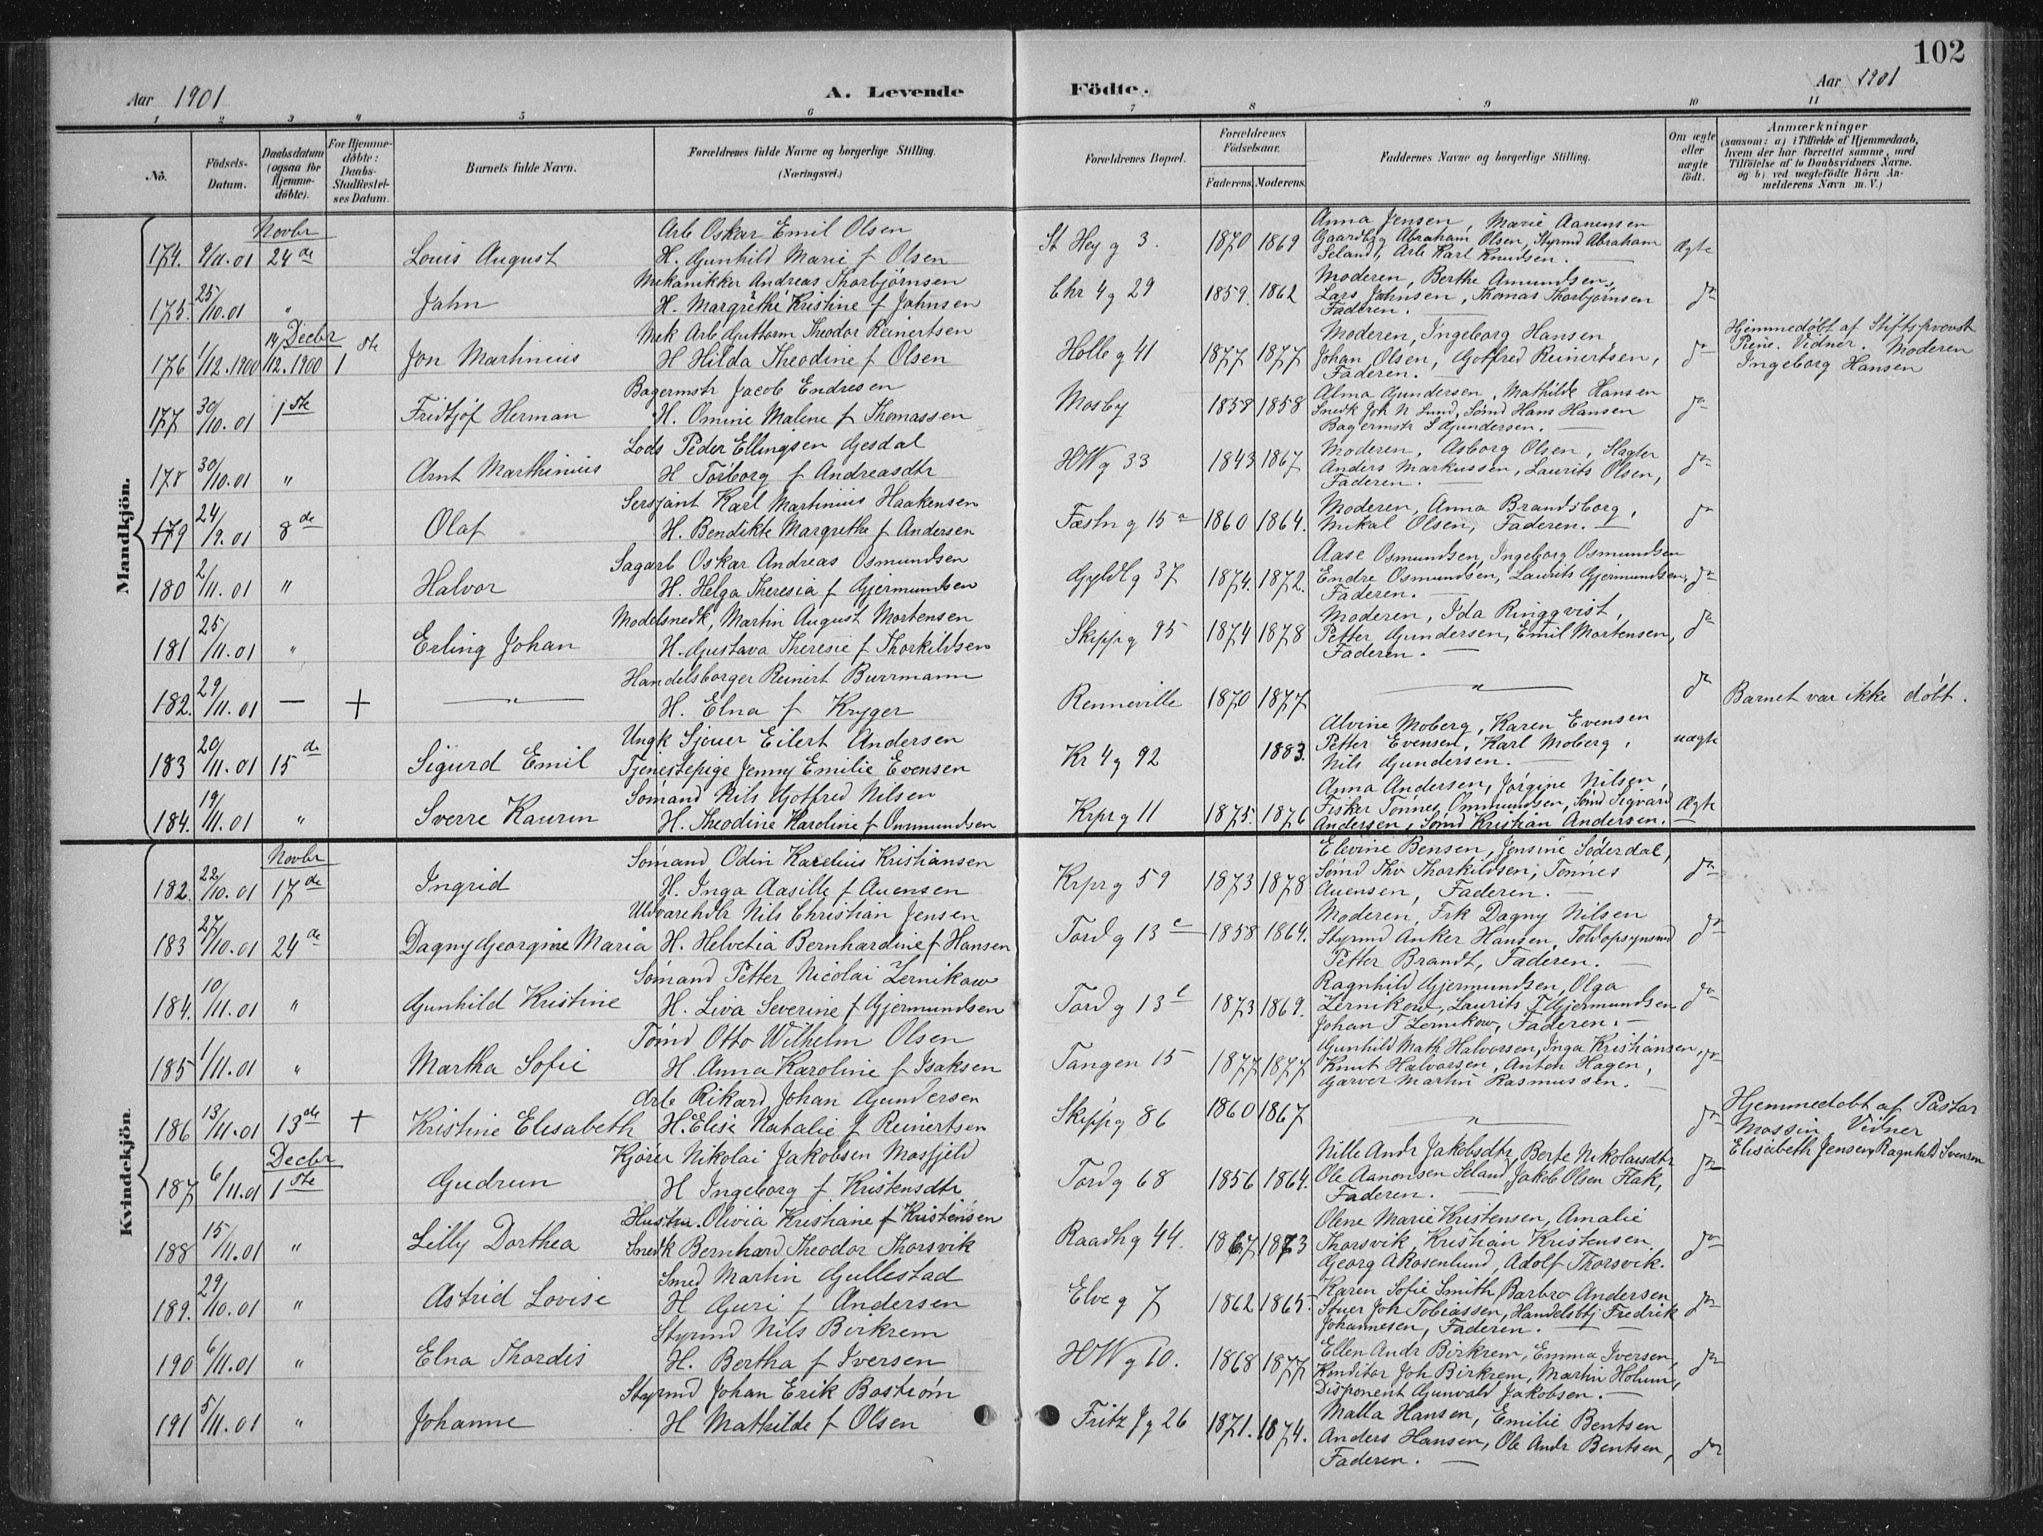 102
Aar 1901
A. Levende
Födte.
Aar 1901
1 2 3 4 5 6 7 8 9 10 11
No.
Födsels-Datum.
Daabsdatum (ogsaa för Hjemmedöbte).
For Hjemmedöbte: Daabs-Stadfæstelses Datum.
Barnets fulde Navn.
Forældrenes fulde Navne og borgerlige Stilling. (Næringsvei.)
Forældrenes Bopæl.
Forældrenes Födselsaar.
Faderens. Moderens.
Faddernes Navne og borgerlige Stilling.
Om ægte eller uægte födt.
Anmærkninger
(saasom: a) i Tilfælde af Hjemmedaab, hvem der har forrettet samme, med Tilföielse af to Daabsvidners Navne. og b) ved uægtefödte Börn Anmelderens Navn m. V.)
Mandkjön.
Novbr
174. 9/11.01 24de Louis August
Arb Oskar Emil Olsen
H. Gunhild Marie f Olsen
St Hey g 3. 1870 1869
Anna Jensen, Marie Aanensen
Gaardbrg Abraham Olsen, Styrmd Abraham
Seland, Arb Karl Knudsen. —
Ægte
175. 25/10.01 " Jahn
Mekanikker Andreas Thorbjørnsen
H. Margrethe Kristine f Jahnsen
Chr 4 g 29 1859. 1862
Moderen, Berthe Amundsen,
Lars Jahnsen, Thomas Thorbjørnsen
Faderen. —
do
Decbr
176 1/12.1900 14/12.1900 1ste Jon Martinius
Mek Arb Guttorm Theodor Reinertsen
H Hilda Theodine f Olsen
Holbg 41 1877 1877
Moderen, Ingeborg Hansen
Johan Olsen, Gotfred Reinertsen,
Faderen. —
do
Hjemmedøbt af Stiftsprovst
Piene. Vidner. Moderen
Ingeborg Hansen
177 30/10.01 1ste Fridtjof Herman
Bagermstr Jacob Endresen
H. Omine Malene f Thomassen
Mosby 1858 1858
Alma Gundersen, Mathilde Hansen
Snedk Joh N Lund, Sømd Hans Hansen
Bagermstr S Gundersen. —
do
178 30/10.01 " Arnt Marthinius
Lods Peder Ellingsen Gjesdal
H Torborg f Andreasdtr
HW g 33 1843 1867
Moderen, Asborg Olsen, Slagter
Anders Markussen, Laurits Olsen,
Faderen. —
do
179 24/9.01 8de Olaf
Sersjant Karl Martinius Haakensen
H. Bendikte Margrethe f Andersen
Fæstn g 15a 1860 1864.
Moderen, Anna Brandsborg,
Mikal Olsen, Faderen. —
do
180 2/11.01 " Halvor
Sagarb Oskar Andreas Osmundsen
H. Helga Theresia f Gjermundsen
Gyldl g 37 1874. 1872.
Aase Osmundsen, Ingeborg Osmundsen
Endre Osmundsen, Laurits Gjermundsen,
Faderen. —
do
181 25/11.01 " Erling Johan
Modelsnedk, Martin August Mortensen
H. Gustava Theresie f Thorkildsen
Skippg 95 1874 1878
Moderen, Ida Ringqvist,
Petter Gundersen, Emil Mortensen,
Faderen. —
do
182. 29/11.01 — + — " —
Handelsborger Reinert Burrmann
H. Elna f Kryger
Renneville 1870 1877
— " —
do
Barnet var ikke døbt.
183 20/11.01 15de Sigurd Emil
Ungk Sjeuer Eilert Andersen
Tjenestepige Jenny Emilie Evensen
Kr 4 g 92 1883.
Alvine Moberg, Karen Evensen
Petter Evensen, Karl Moberg,
Nils Gundersen. —
uægte
184. 19/11.01 " Sverre Kaurin
Sømand Nils Gotfred Nilsen
H. Theodine Karoline f Ommundsen
Krpr g 11 1875. 1876
Anna Andersen, Jørgine Nilsen,
Fisker Tønnes Ommundsen, Sømd Sigvard
Andersen, Sømd Kristian Andersen.
Ægte
Kvindekjön.
Novbr
182. 22/10.01 17de Ingrid
Sømand Odin Karelius Kristiansen
H. Inga Aasille f Auensen
Krpr g 59 1873 1878
Elevine Bensen, Jensine Søderdal,
Sømd Tho Thorkildsen, Tønnes
Auensen, Faderen. —
do
183 27/10.01 24de Dagny Georgine Maria
Uldvarehdlr Nils Christian Jensen
H. Helvetia Bernhardine f Hansen
Tord g 13c 1858 1864.
Moderen, Frk Dagny Nilsen
Styrmd Anker Hansen, Toldopsynsmd
Petter Brandt, Faderen. —
do
184. 10/11.01 " Gunhild Kristine
Sømand Petter Nicolai Zernikow
H. Liva Severine f Gjermundsen
Tord g 13b 1873 1869.
Ragnhild Gjermundsen, Olga
Zernikow, Laurits T Gjermundsen
Johan T Zernikow, Faderen. —
do
185 1/11.01 " Martha Sofie
Tømd Otto Wilhelm Olsen
H. Anna Karoline f Isaksen
Tangen 15 1877 1877
Gunhild Math Halvorsen, Inga Kristiansen,
Knut Halvorsen, Anton Hagen,
Garver Martin Rasmussen. —
do
186 13/11.01 13de + Kristine Elisabeth
Arb Rikard Johan Gundersen
H. Elise Natalie f Reinertsen
Skippg 86 1860 1867
— " —
do
Hjemmedøbt af Pastor
Mossin Vidner
Elisabeth Jensen, Ragnhild Svensen
Decbr
187 6/11.01 1ste Gudrun
Kjører Nikolai Jakobsen Mosfjeld
H Ingeborg f Kristensdtr
Tord g 68 1856 1864.
Nille Andr Jakobsdtr, Berte Nikolaisdtr
Ole Aanonsen Seland, Jakob Olsen Fisk,
Faderen. —
do
188 15/11.01 " Lilly Dorthea
Hustru Olivia Kristiane f Kristensen
Smedk Bernhard Theodor Thorsvik
Raadh g 44. 1867 1873
Olene Marie Kristensen, Amalie
Thorsvik, Kristian Kristensen
Georg A Rosenlund, Adolf Thorsvik.
do
189. 29/10.01 " Astrid Lovise
Smed Martin Gullestad
H Guri f Andersen
Elve g 7 1862 1865.
Karen Sofie Smith, Barbro Andersen
Stuer Joh Tobiassen, Handelsbtj Fredrik
Johannesen, Faderen. —
do
190 6/11.01 " Elna Thordis
Styrmd Nils Birkrem
H. Bertha f Iversen
HW g 60. 1868 1877
Ellen Andr Birkrem, Emma Iversen,
Konditor Joh Birkrem, Martin Holum,
Disponent Gunvald Jakobsen. —
do
191 5/11.01 " Johanne
Styrmd Johan Erik Bostrøm
H Mathilde f Olsen
Fritz J g 26 1871. 1874.
Malla Hansen, Emilie Bentsen
Anders Hansen, Ole Andr Bentsen,
Faderen. —
do